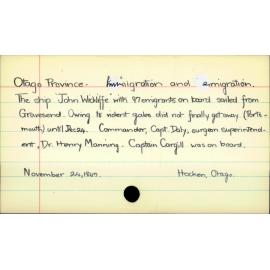 Otago Province - Immigration and emigration.
The ship "John Wickliffe" with 97 emigrants on board sailed from
Gravesend. Owing to violent gales did not finally get away (Ports-
mouth) until Dec 24. Commander, Capt. Daly, surgeon superintend-
ent, Dr. Henry Manning. Captain Cargill was on board.
November 24, 1847. Hocken, Otago.